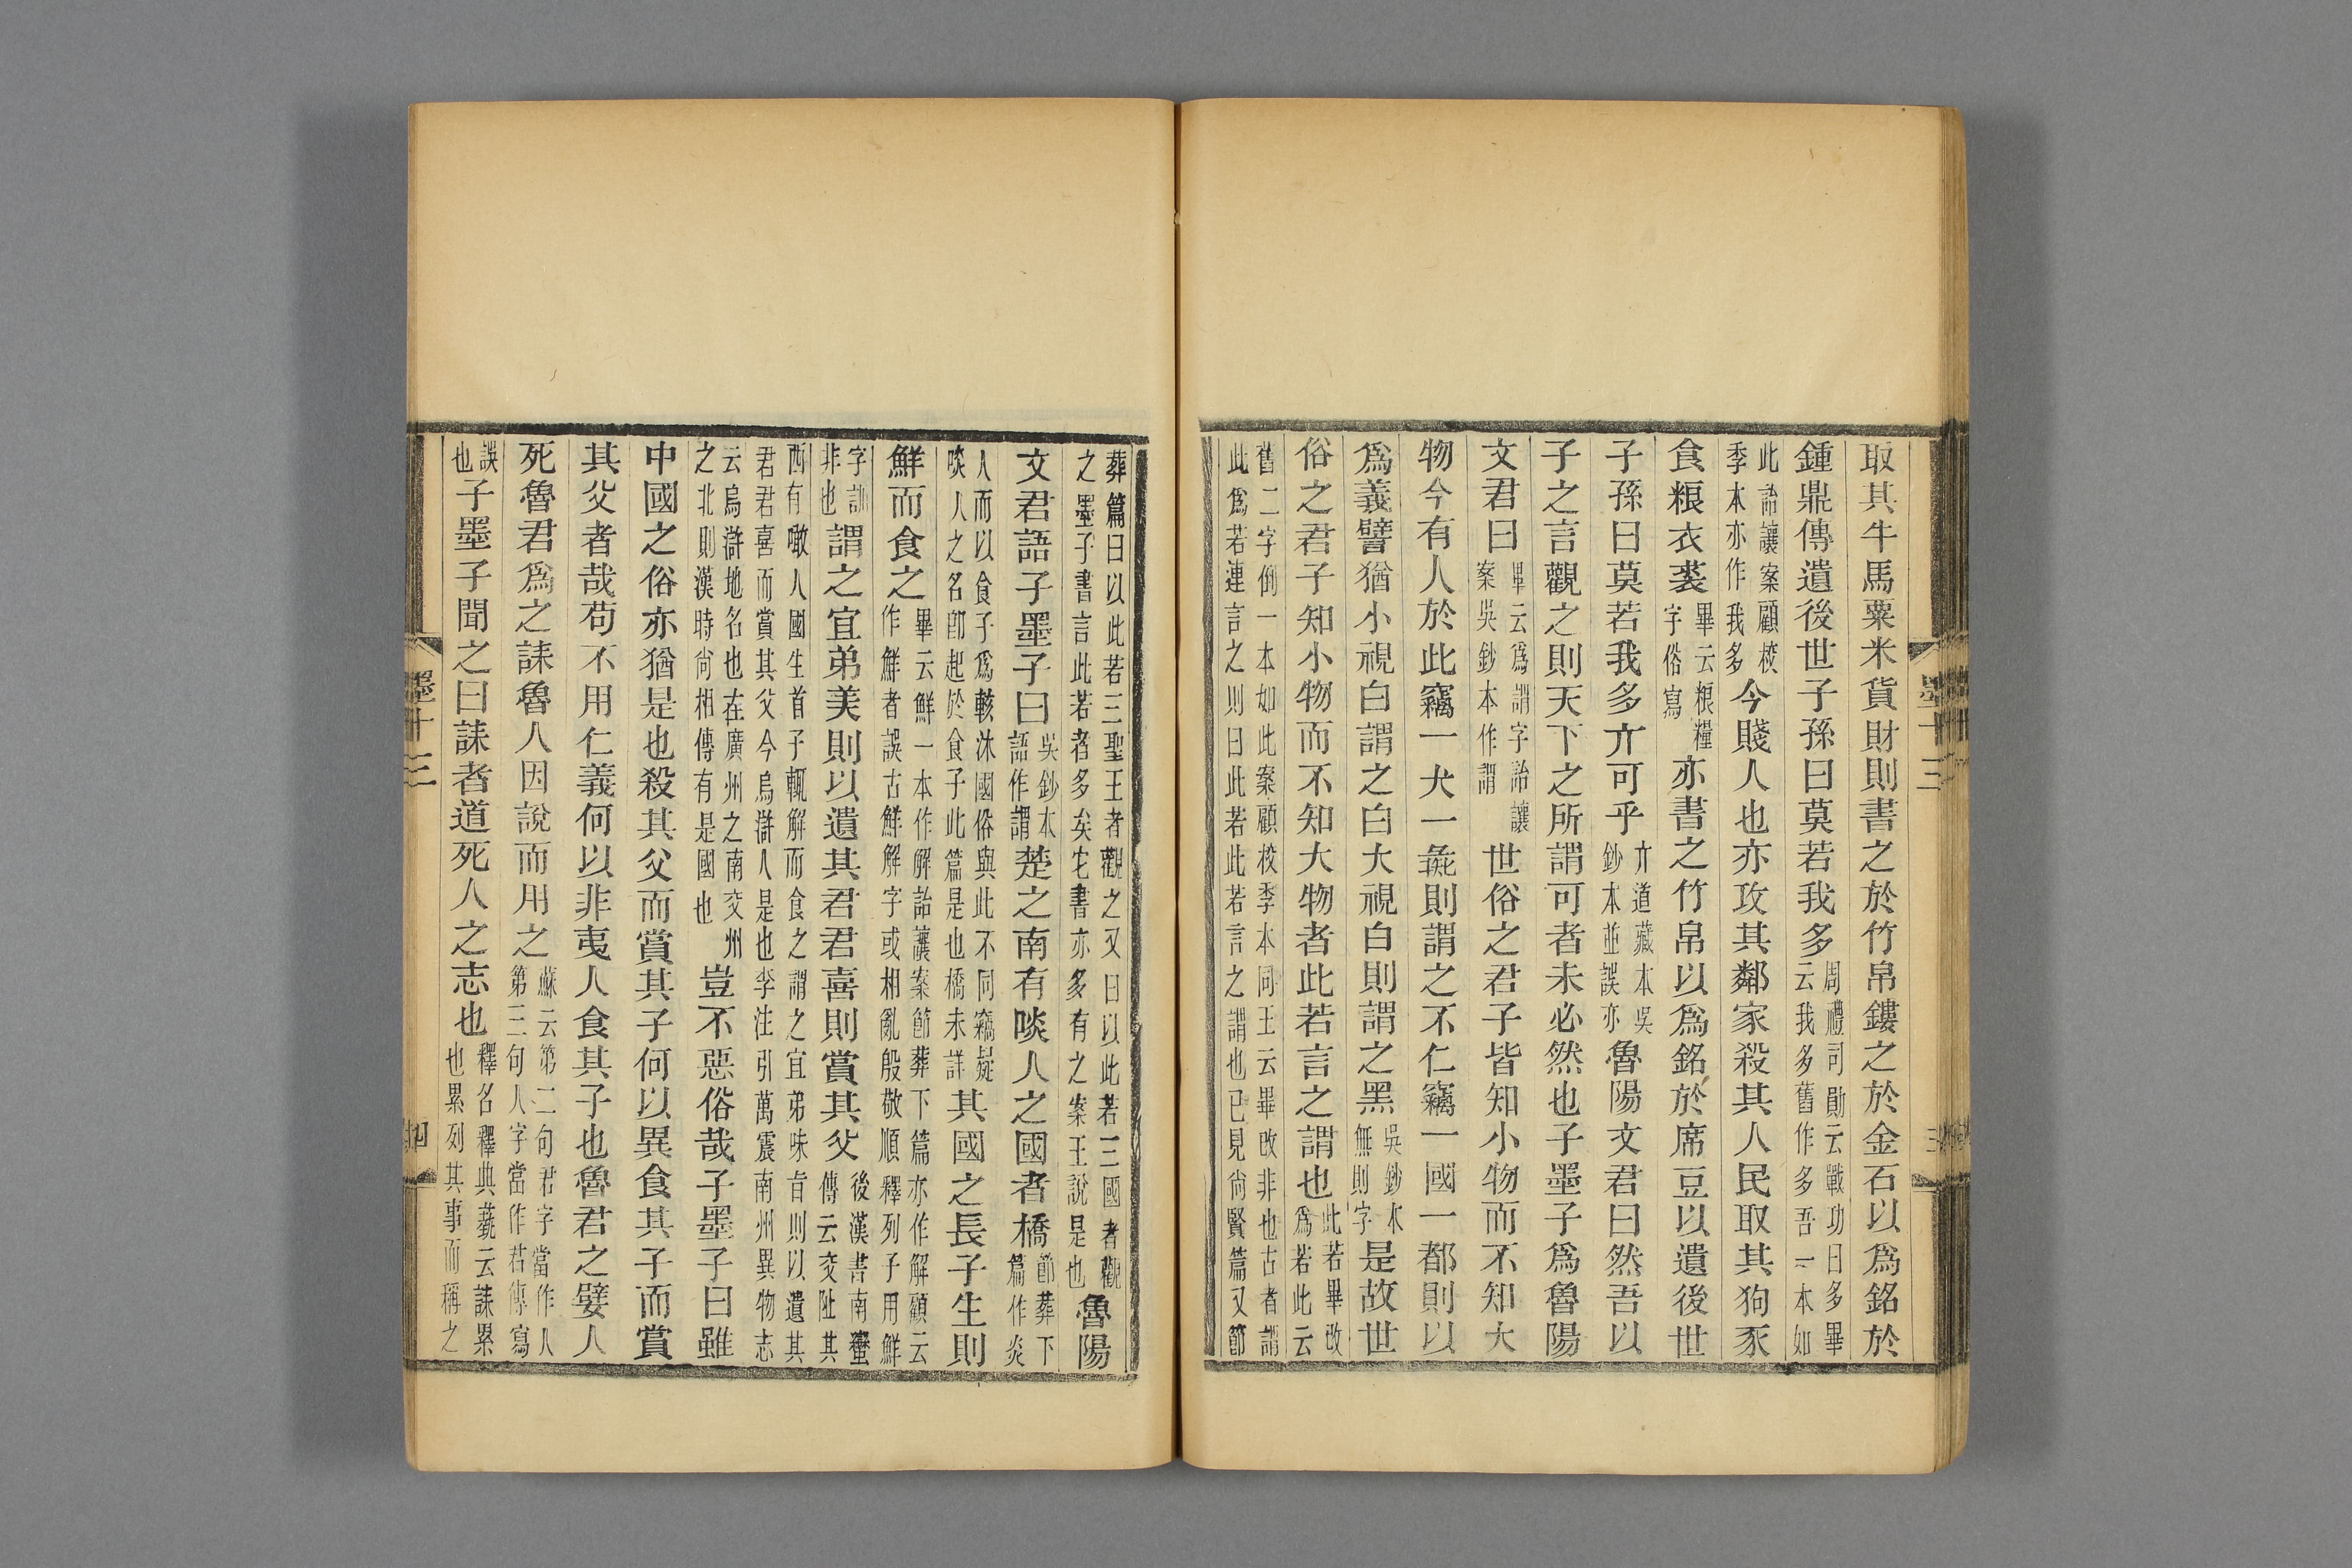 取其牛馬粟米貨財則書之於竹帛鏤之於金石以爲銘於
鍾鼎傳遺後世子孫曰莫若我多周禮司勛云戰功曰多畢云我多舊作多吾一本如
此詒讓案顧校季本亦作我多今賤人也亦攻其鄰家殺其人民取其狗豕
食粮衣裘畢云粮糧字俗寫亦書之竹帛以爲銘於席豆以遺後世
子孫曰莫若我多亓可乎亓道藏本吳鈔本並誤亦魯陽文君曰然吾以
子之言觀之則天下之所謂可者未必然也子墨子爲魯陽
文君曰畢云爲謂字詒讓案吳鈔本作謂世俗之君子皆知小物而不知大
物今有人於此竊一犬一彘則謂之不仁竊一國一都則以
爲義譬猶小視白謂之白大視白則謂之黑吳鈔本無則字是故世
俗之君子知小物而不知大物者此若言之謂也此若畢改爲若此云
舊二字倒一本如此案顧校季本同王云畢改非也古者謂此爲若連言之則曰此若此若言之謂也已見尙賢篇又節
墨十三
三
葬篇曰以此若三聖王者觀之又曰以此若三國者觀之墨子書言此若者多矣它書亦多有之案王說是也魯陽
文君語子墨子曰吳鈔本語作謂楚之南有啖人之國者橋節葬下篇作炎
人而以食子爲軫沐國俗與此不同竊疑啖人之名卽起於食子此篇是也橋未詳其國之長子生則
鮮而食之畢云鮮一本作解詒讓案節葬下篇亦作解顧云作鮮者誤古鮮解字或相亂殷敬順釋列子用鮮
字訓非也謂之宜弟美則以遺其君君喜則賞其父後漢書南蠻傳云交阯其
西有噉人國生首子輒解而食之謂之宜弟味旨則以遺其君君喜而賞其父今烏滸人是也李注引萬震南州異物志
云烏滸地名也在廣州之南交州之北則漢時尙相傳有是國也豈不惡俗哉子墨子曰雖
中國之俗亦猶是也殺其父而賞其子何以異食其子而賞
其父者哉苟不用仁義何以非夷人食其子也魯君之嬖人
死魯君爲之誄魯人因說而用之蘇云第二句君字當作人第三句人字當作君傳寫
誤也子墨子聞之曰誄者道死人之志也釋名釋典藝云誄累也累列其事而稱之
墨十三
四